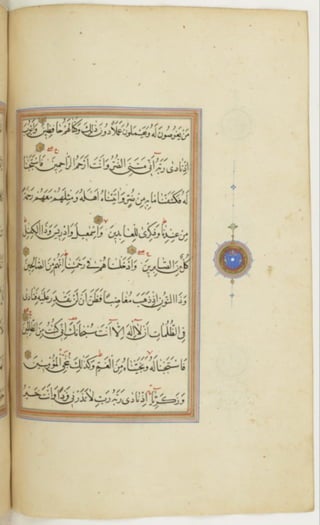 مَن يَغُوصُونَ لَهُ وَيَعْمَلُونَ عَمَلًا دُونَ ذَلِكَ وَكُنَّا لَهُمْ حَافِظِينَ وَأَيُّوبَ
اِذْ نَادَى رَبَّهُ أَنِّي مَسَّنِيَ الضُّرُّ وَأَنْتَ أَرْحَمُ الرَّاحِمِينَ فَاسْتَجَبْنَا
لَهُ فَكَشَفْنَا مَا بِهِ مِنْ ضُرٍّ وَآتَيْنَاهُ أَهْلَهُ وَمِثْلَهُمْ مَعَهُمْ رَحْمَةً
مِنْ عِنْدِنَا وَذِكْرَى لِلْعَابِدِينَ وَإِسْمَعِيلَ وَإِدْرِيسَ وَذَا الْكِفْلِ
كُلٌّ مِنَ الصَّابِرِينَ وَأَدْخَلْنَاهُمْ فِي رَحْمَتِنَا إِنَّهُمْ مِنَ الصَّالِحِينَ
وَذَا النُّونِ إِذْ ذَهَبَ مُغَاضِبًا فَظَنَّ أَنْ لَنْ نَقْدِرَ عَلَيْهِ فَنَادَى
فِي الظُّلُمَاتِ أَنْ لَا إِلَهَ إِلَّا أَنْتَ سُبْحَانَكَ إِنِّي كُنْتُ مِنَ الظَّالِمِينَ
فَاسْتَجَبْنَا لَهُ وَنَجَّيْنَاهُ مِنَ الْغَمِّ وَكَذَلِكَ نُنْجِي الْمُؤْمِنِينَ
وَزَكَرِيَّا إِذْ نَادَى رَبَّهُ رَبِّ لَا تَذَرْنِي فَرْدًا وَأَنْتَ خَيْرُ